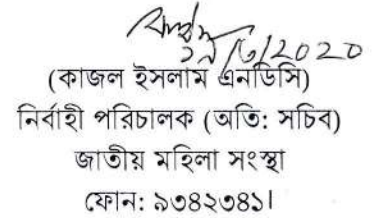 ১৯/৩/2020
(কাজল ইসলাম এনডিসি)
নির্বাহী পরিচালক (অতি: সচিব)
জাতীয় মহিলা সংস্থা
ফোন: ৯৩৪২৩৪১।